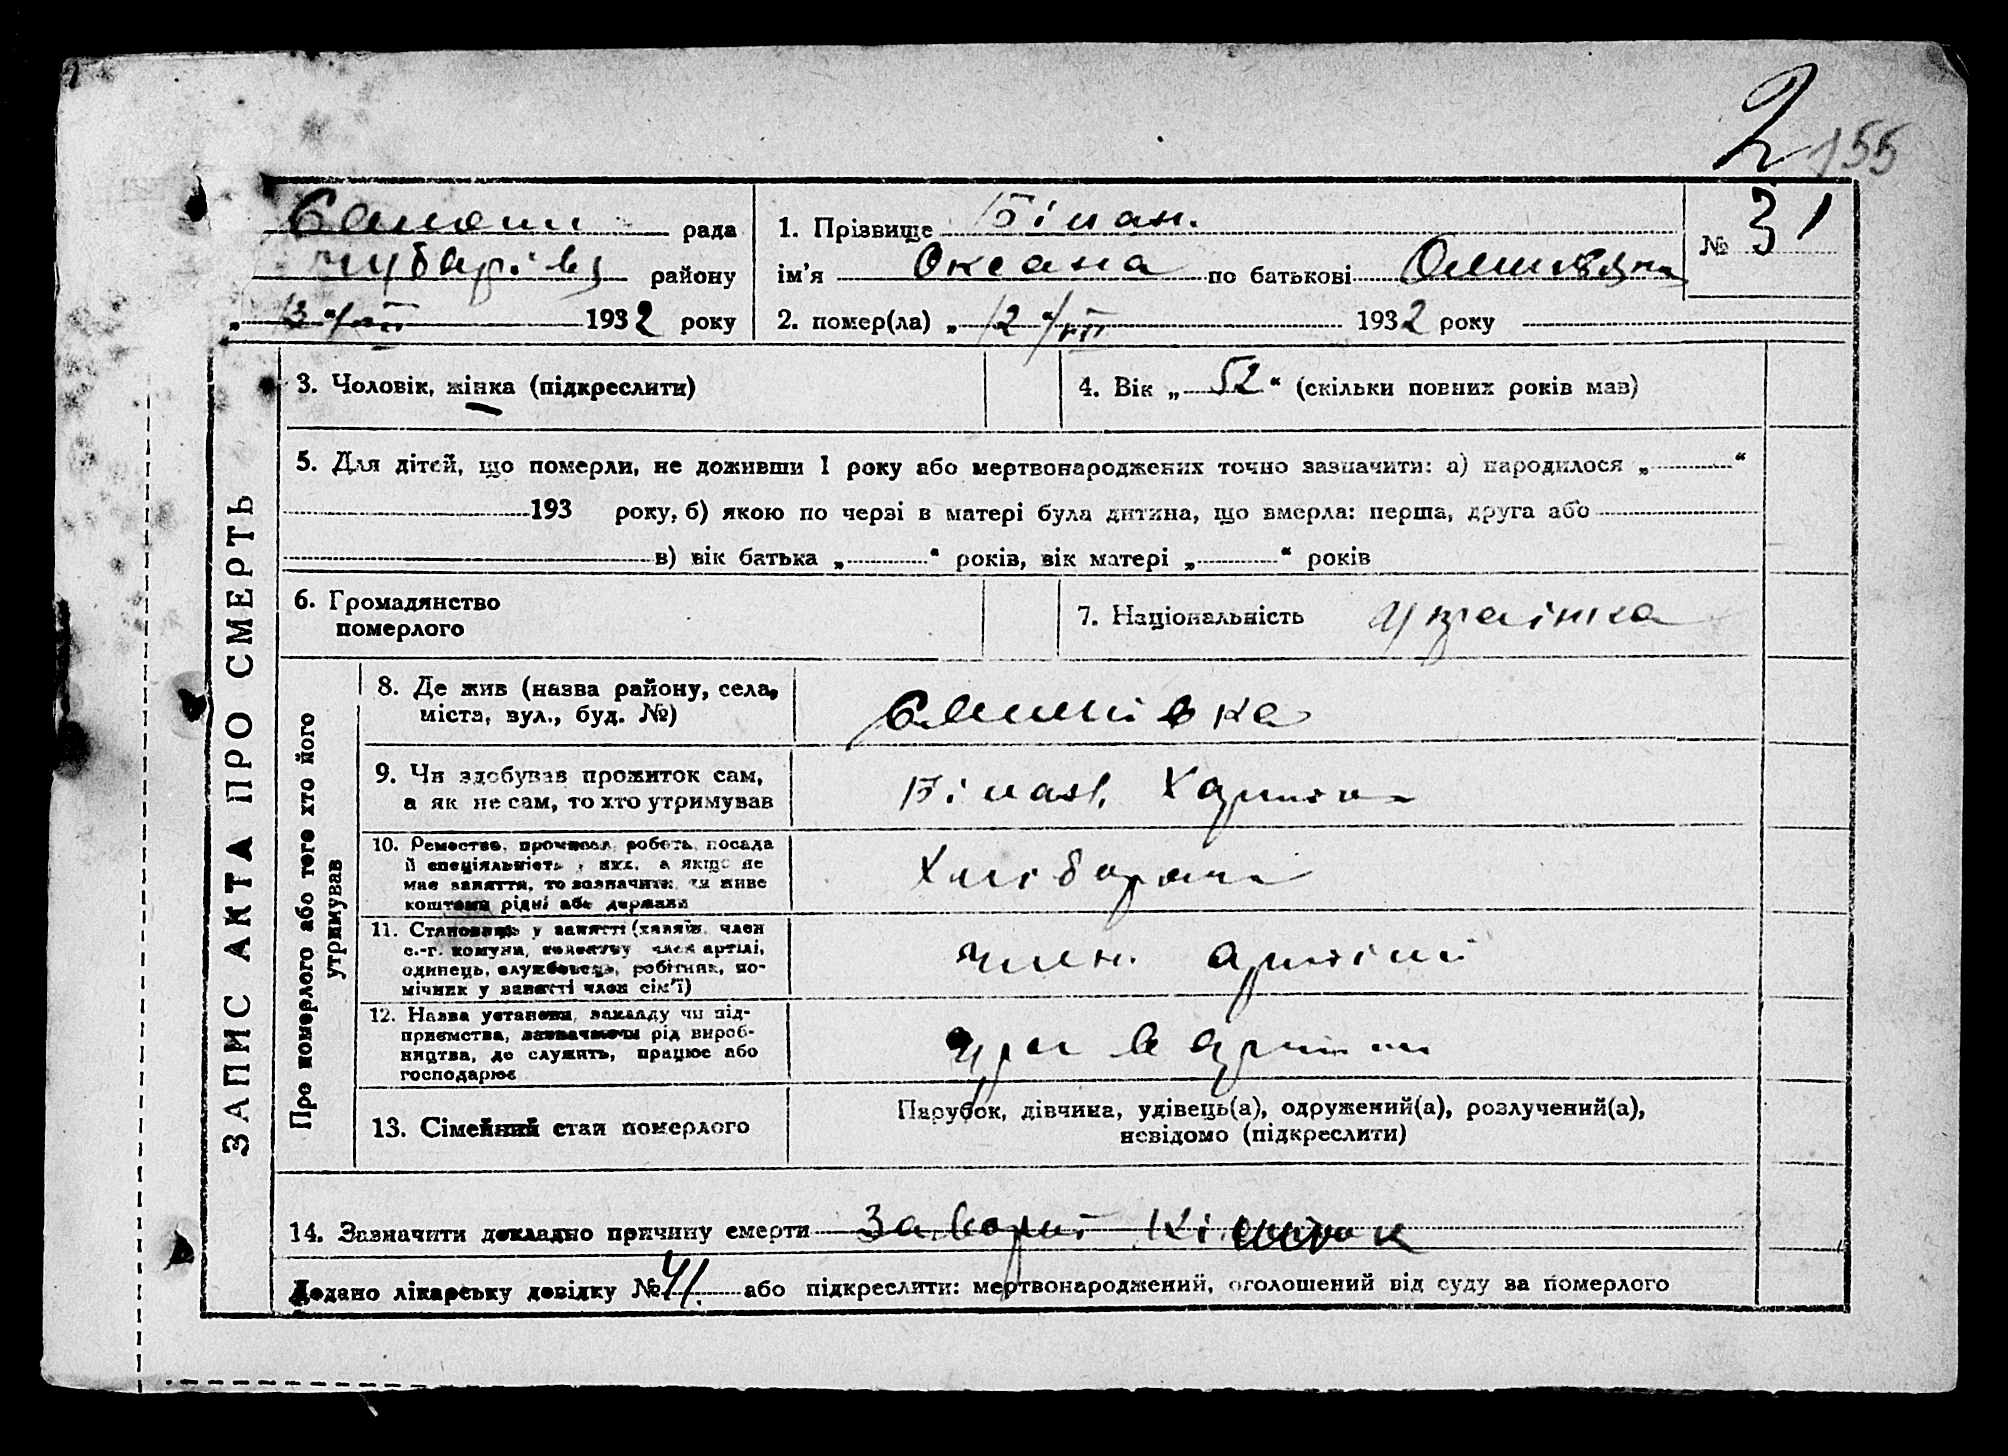 2 155
рада
району
1932 року
1. Прізвище Біла
№ 31
ім'я Оксана по батькові
2. помер(ла) „12“/VII 1932 року
ЗАПИС АКТА ПРО СМЕРТЬ
3. Чоловік, жінка (підкреслити)
4. Вік „52“ (скільки повних років мав)
5. Для дітей, що померли, не доживши 1 року або мертвонароджених точно зазначити: а) народилося „ “
193 року, б) якою по черзі в матері була дитина, що вмерла: перша, друга або
в) вік батька „ “ років, вік матері „ “ років
6. Громадянство
померлого
7. Національність
Про померлого або того хто його
утримував
8. Де жив (назва району, села,
міста, вул., буд. №)
9. Чи здобував прожиток сам,
а як не сам, то хто утримував
10. Ремество, промисел, робота, посада
й спеціяльність у них, а якщо не
має заняття, то зазначити, чи живе
коштами рідні або держави
Хлібороби
11. Становище у занятті (хазяїн, член
с.-г. комуни, колективу член артілі,
одинець, службовець, робітник, по-
мічник у занятті член сім'ї)
член. артілі
12. Назва установи, закладу чи під-
приємства, зазначаючи рід вироб-
ництва, де служить, працює або
господарює
13. Сімейний стан померлого
Парубок, дівчина, удівець(а), одружений(а), розлучений(а),
невідомо (підкреслити)
14. Зазначити докладно причину смерти
Додано лікарську довідку № 41. або підкреслити: мертвонароджений, оголошений від суду за померлого